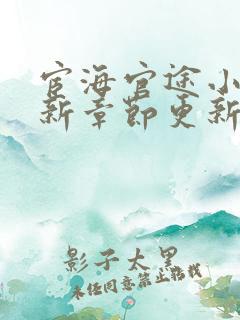 宦海官途小
新章节更新
影子太黑
未经同意禁止转载